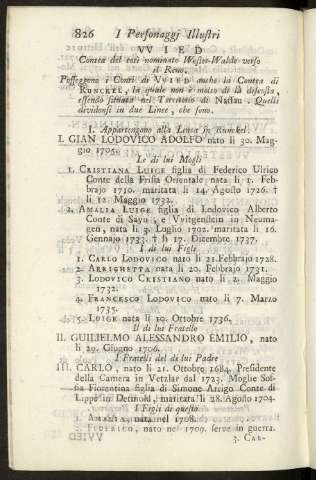 826 I Personaggj Illustri
VV I E D
Contea del così nominato Wester-Walde verso
il Reno.
Posseggono i Conti di VVIED anche la Contea di
RUNCKEL, la quale non è molto di là discosta,
essendo situata nel Territorio di Nassau. Quelli
dividonsi in due Linee, che sono.
I. Appartengono alla Linea in Runckel.
I. GIAN LODOVICO ADOLFO nato li 30. Mag-
gio 1705.
Le di lui Mogli
1. CRISTIANA LUIGE figlia di Federico Ulrico
Conte della Frisia Orientale, nata li 1. Feb-
brajo 1710. maritata li 14. Agosto 1726. †
li 12. Maggio 1732.
2. AMALIA LUIGE figlia di Lodovico Alberto
Conte di Sayn, e Vvitgenstein in Neuma-
gen, nata li 3. Luglio 1702. maritata li 16.
Gennajo 1733. † li 17. Dicembre 1737.
I di lui Figli
1. CARLO LODOVICO nato li 21. Febbrajo 1728.
2. ARRIGHETTA nata li 20. Febbrajo 1731.
3. LODOVICO CRISTIANO nato li 2. Maggio
1732.
4. FRANCESCO LODOVICO nato li 7. Marzo
1735.
5. LUIGE nata li 19. Ottobre 1736.
Il di lui Fratello
II. GUILIELMO ALESSANDRO EMILIO, nato
li 29. Giugno 1706.
I Fratelli del di lui Padre
III. CARLO, nato li 21. Ottobre 1684. Presidente
della Camera in Vetzlar dal 1723. Moglie Sof-
fia Fiorentina figlia di Simone Arrigo Conte di
Lippe in Detmold, maritata li 28. Agosto 1704.
I Figli di questo
1. AMALIA, nata nel 1708.
2. FEDERICO, nato nel 1709. serve in guerra.
3. CAR-